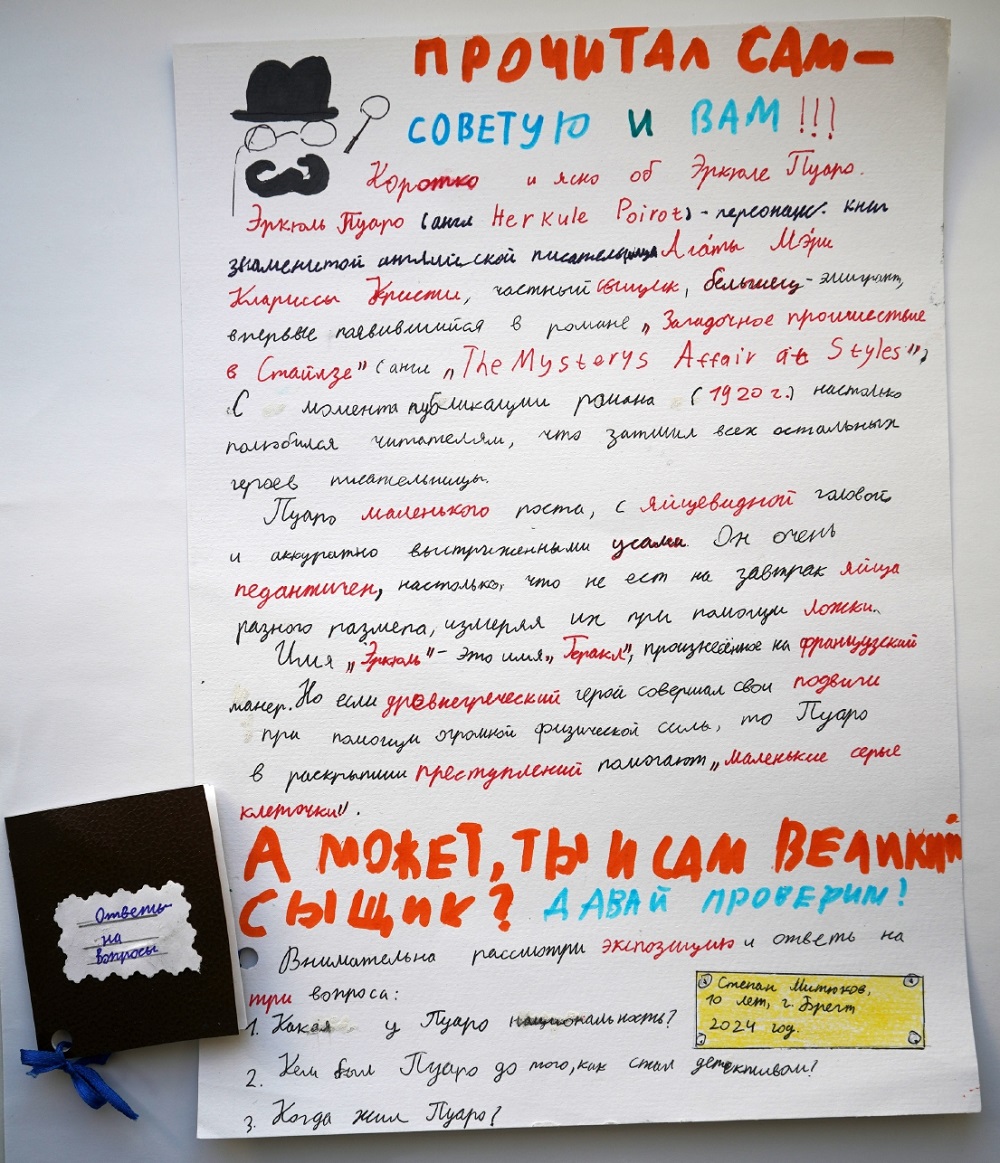 ПРОЧИТАЛ САМ—
СОВЕТУЮ И ВАМ!!!
Коротко и ясно об Эркюле Пуаро.
Эркюль Пуаро (англ Herkule Poirot) - персонаж книг
знаменитой английской писательницы Ага́ты Мэ́ри
Клариссы Кристи, частный сыщик, бельгиец - эмигрант,
впервые появившийся в романе „Загадочное происшествие
в Стайлзе" (англ „The Mysterys Affair at Styles"),
С момента публикации романа (1920 г.) настолько
полюбился читателям, что затмил всех остальных
героев писательницы.
Пуаро маленького роста, с яйцевидной головой
и аккуратно выстриженными усами. Он очень
педантичен, настолько, что не ест на завтрак яйца
разного размера, измеряя их при помощи ложки.
Имя „Эркюль" - это имя „Геракл", произнесённое на французский
манер. Но если древнегреческий герой совершал свои подвиги
при помощи огромной физической силы, то Пуаро
в раскрытии преступлений помогают „маленькие серые
клеточки".
А МОЖЕТ, ТЫ И САМ ВЕЛИКИЙ
СЫЩИК? ДАВАЙ ПРОВЕРИМ!
Внимательна рассмотри экспозицию и ответь на
три вопроса:
1. Какая у Пуаро национальность?
2. Кем был Пуаро до того, как стал детективом?
3. Когда жил Пуаро?
Степан Митюков,
10 лет, г. Брест
2024 год.
Ответы
на
вопросы